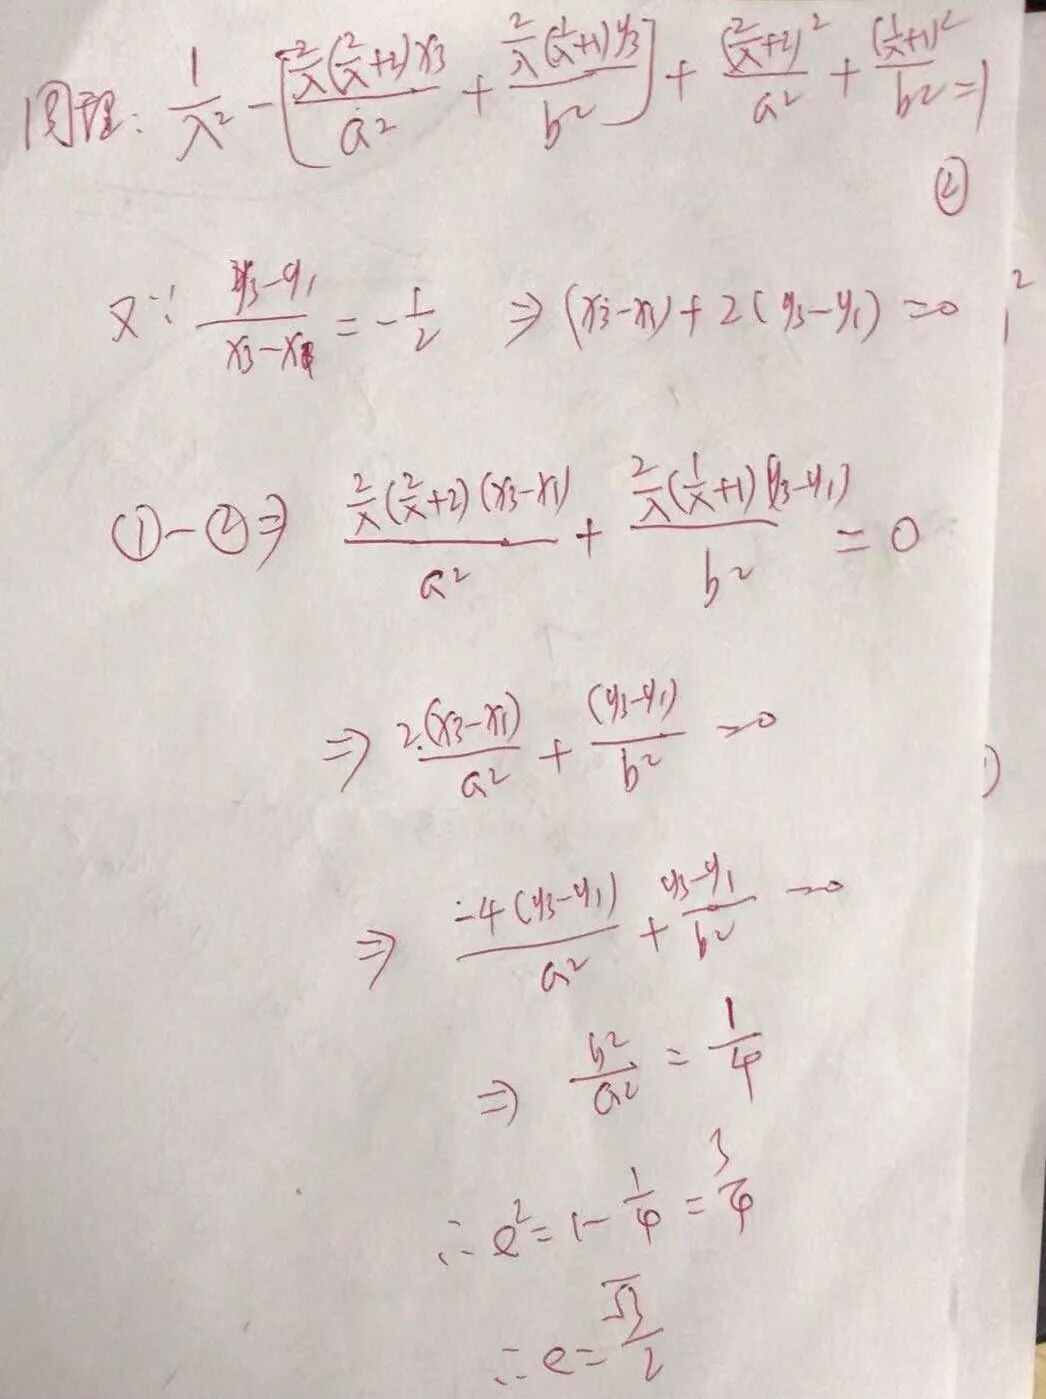 同理: 1/λ² - [ (2/λ)(2/λ+2)x₃/a² + (2/λ)(1/λ+1)y₃/b² ] + (2/λ+2)²/a² + (1/λ+1)²/b² = 1
②
又∵ (y₃-y₁)/(x₃-x₁) = -1/2 ⇒ (x₃-x₁)+2(y₃-y₁)=0
①-②⇒ (2/λ)(2/λ+2)(x₃-x₁)/a² + (2/λ)(1/λ+1)(y₃-y₁)/b² = 0
⇒ 2·(x₃-x₁)/a² + (y₃-y₁)/b² = 0
⇒ -4(y₃-y₁)/a² + (y₃-y₁)/b² = 0
⇒ b²/a² = 1/4
∴ e² = 1 - 1/4 = 3/4
∴ e = √3/2